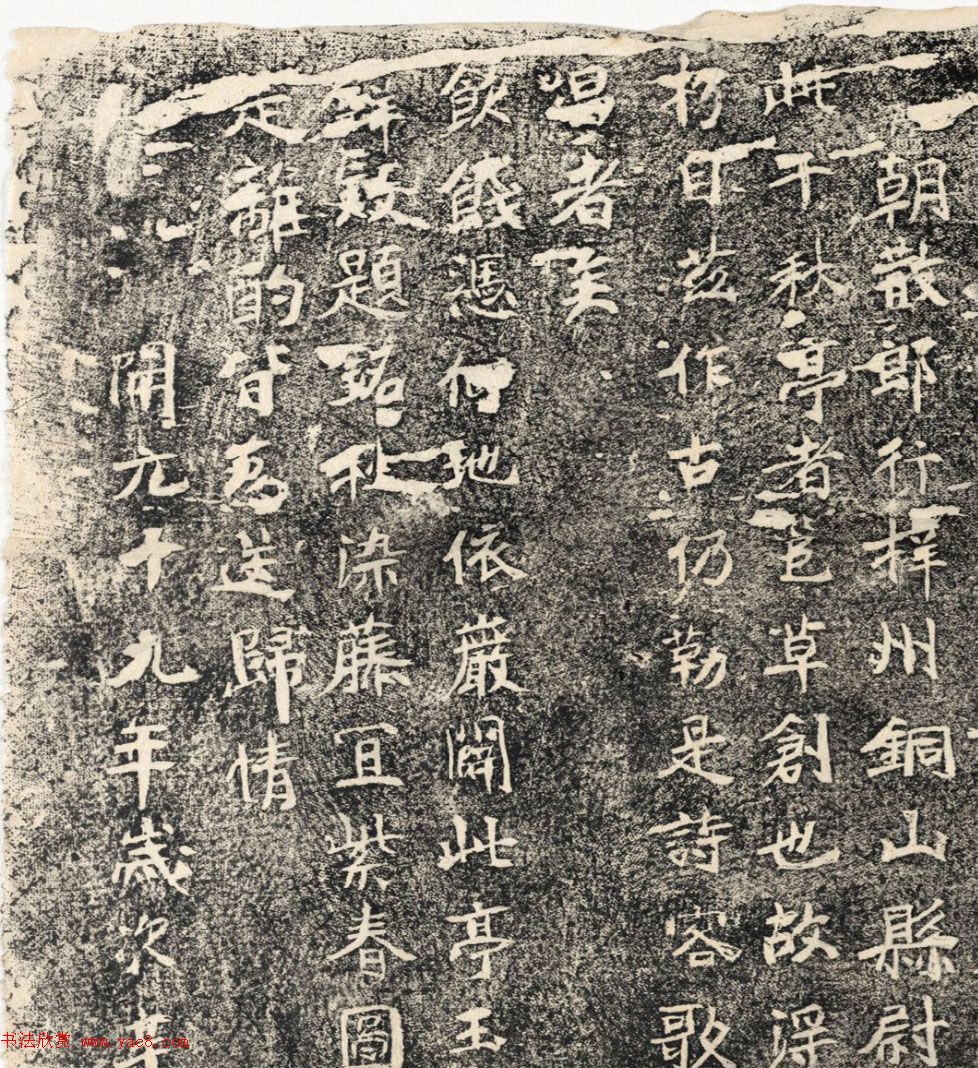 朝散郎行梓州銅山縣尉
此千秋亭者邑草創也故得
材目茲作古仍勒是詩容歌
唱者矣
飲餞憑何地依巖闢此亭玉
題染藤宜紫春圖
走離酌皆為送歸情
開元十九年歲次
书法欣赏 www.yac8.com